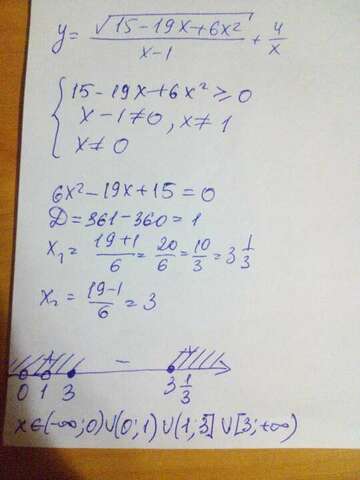 y = √(15-19x+6x²)/(x-1) + 4/x
{ 15-19x+6x² ≥ 0
x-1≠0, x≠1
x≠0
6x²-19x+15=0
D=361-360=1
x₁ = (19+1)/6 = 20/6 = 10/3 = 3 1/3
x₂ = (19-1)/6 = 3
+ - +
0 1 3 3 1/3
x∈(-∞;0)∪(0;1)∪(1;3]∪[3;+∞)